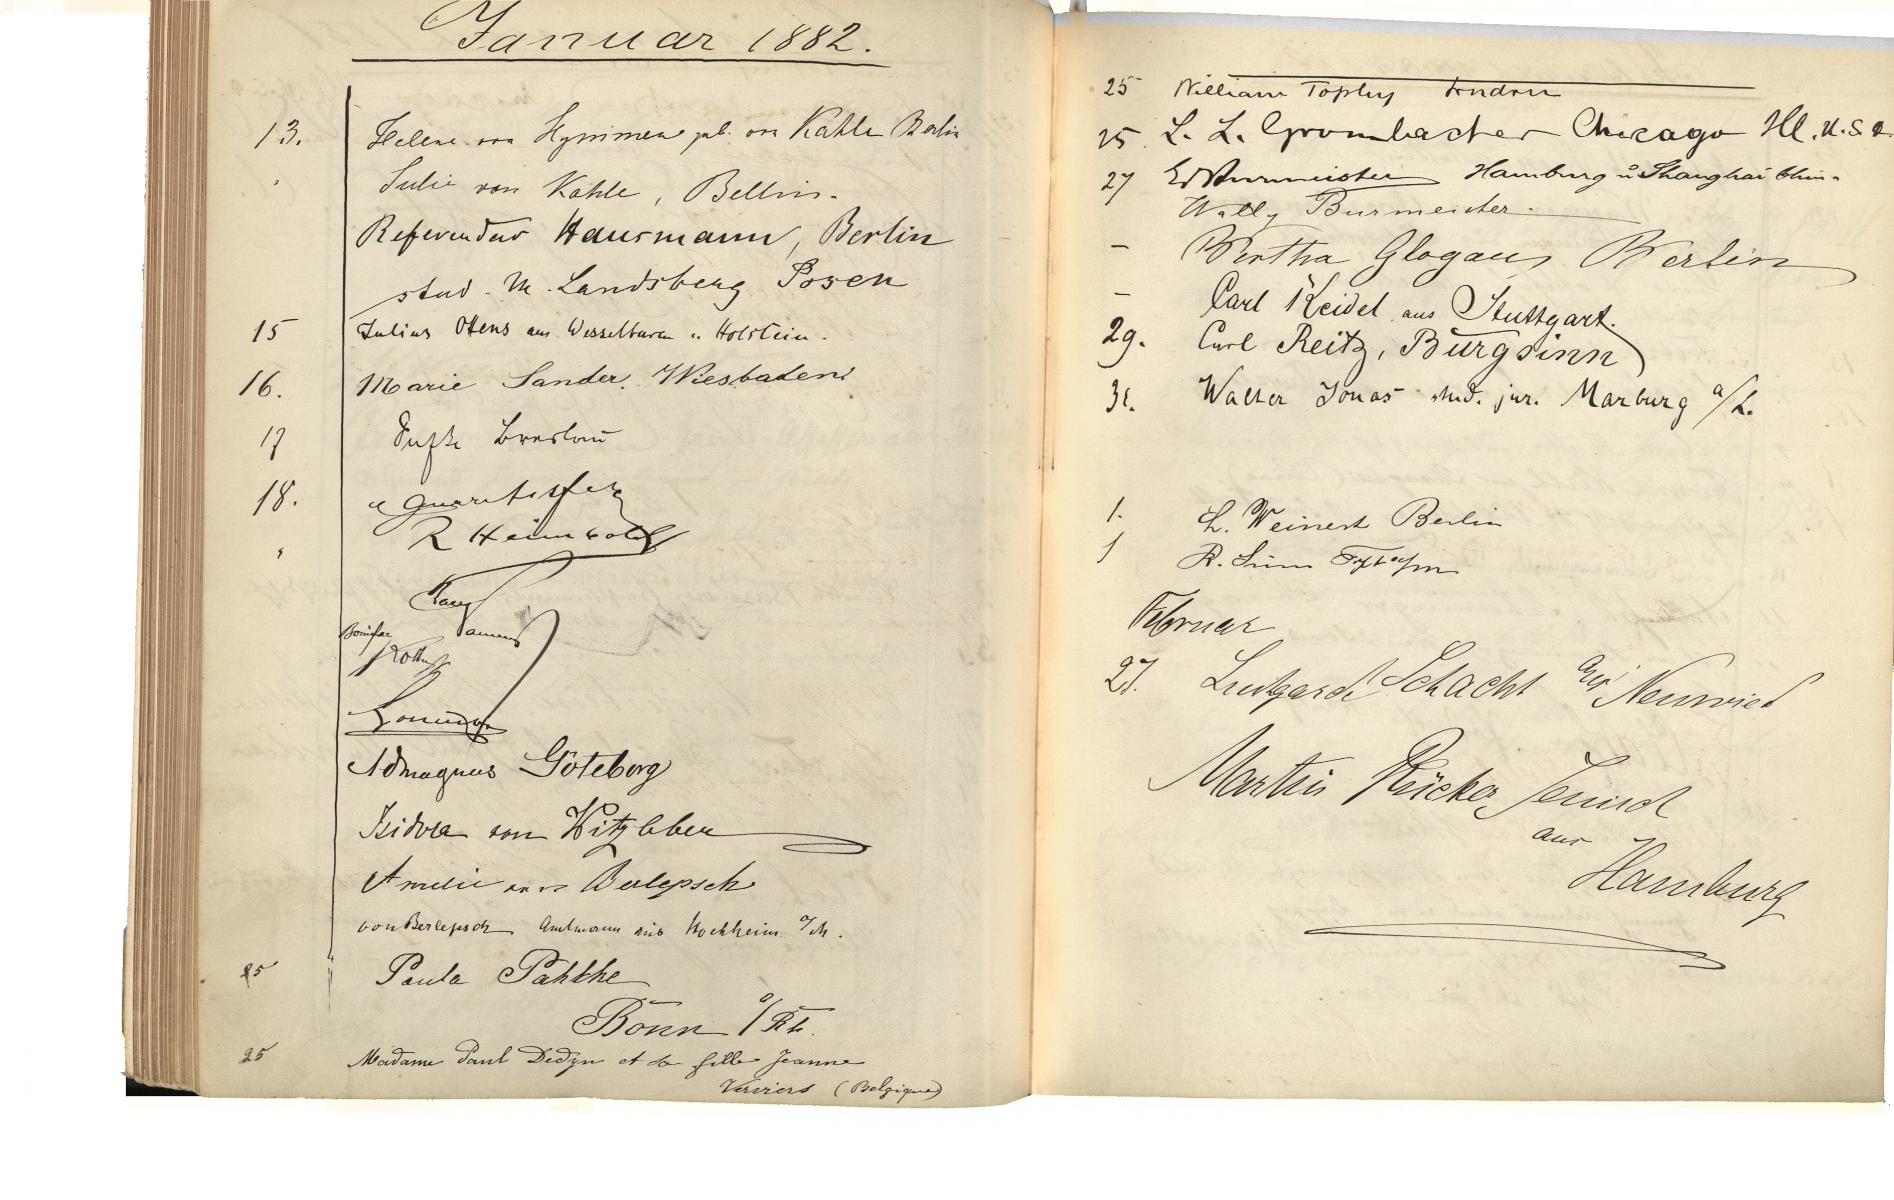 Januar 1882.
13. Helene von Hymmen geb. von Kahle Berlin
Julie von Kahle, Berlin.
Referendar Hausmann, Berlin
stud. M. Landsberg Posen
15 Julius Ottens aus Wesselburen in Holstein.
16. Marie Sander. Wiesbaden
17
18.
R Heimbold
Bonifac
Admagnus Göteborg
Isidore von Witzleben
Amelie von Berlepsch
von Berlepsch Amtmann aus Hochheim a/M.
25 Paula Pahlke
Bonn a/Rh.
25 Madame Paul Dedyn et sa fille Jeanne
Verviers (Belgique)
25 William Topley London
25. L. L. Grombacher Chicago Ill. U.S.A.
27 Ed Burmeister Hamburg u Shanghai China
Wally Burmeister.
– Bertha Glogau, Berlin
– Carl Keidel aus Stuttgart.
29. Carl Reitz, Burgsinn
31. Walter Jonas stud. jur. Marburg a/L.
1. L. Weinert Berlin
1 R.
Februar
27. Luitgarde Schacht aus Neuwied
Martin Rücker Jenisch
aus
Hamburg